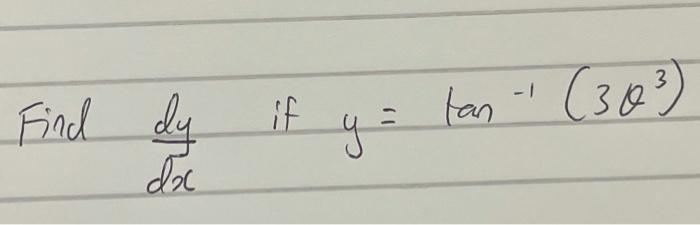 Find dy/dx if y = tan⁻¹ (3θ³)